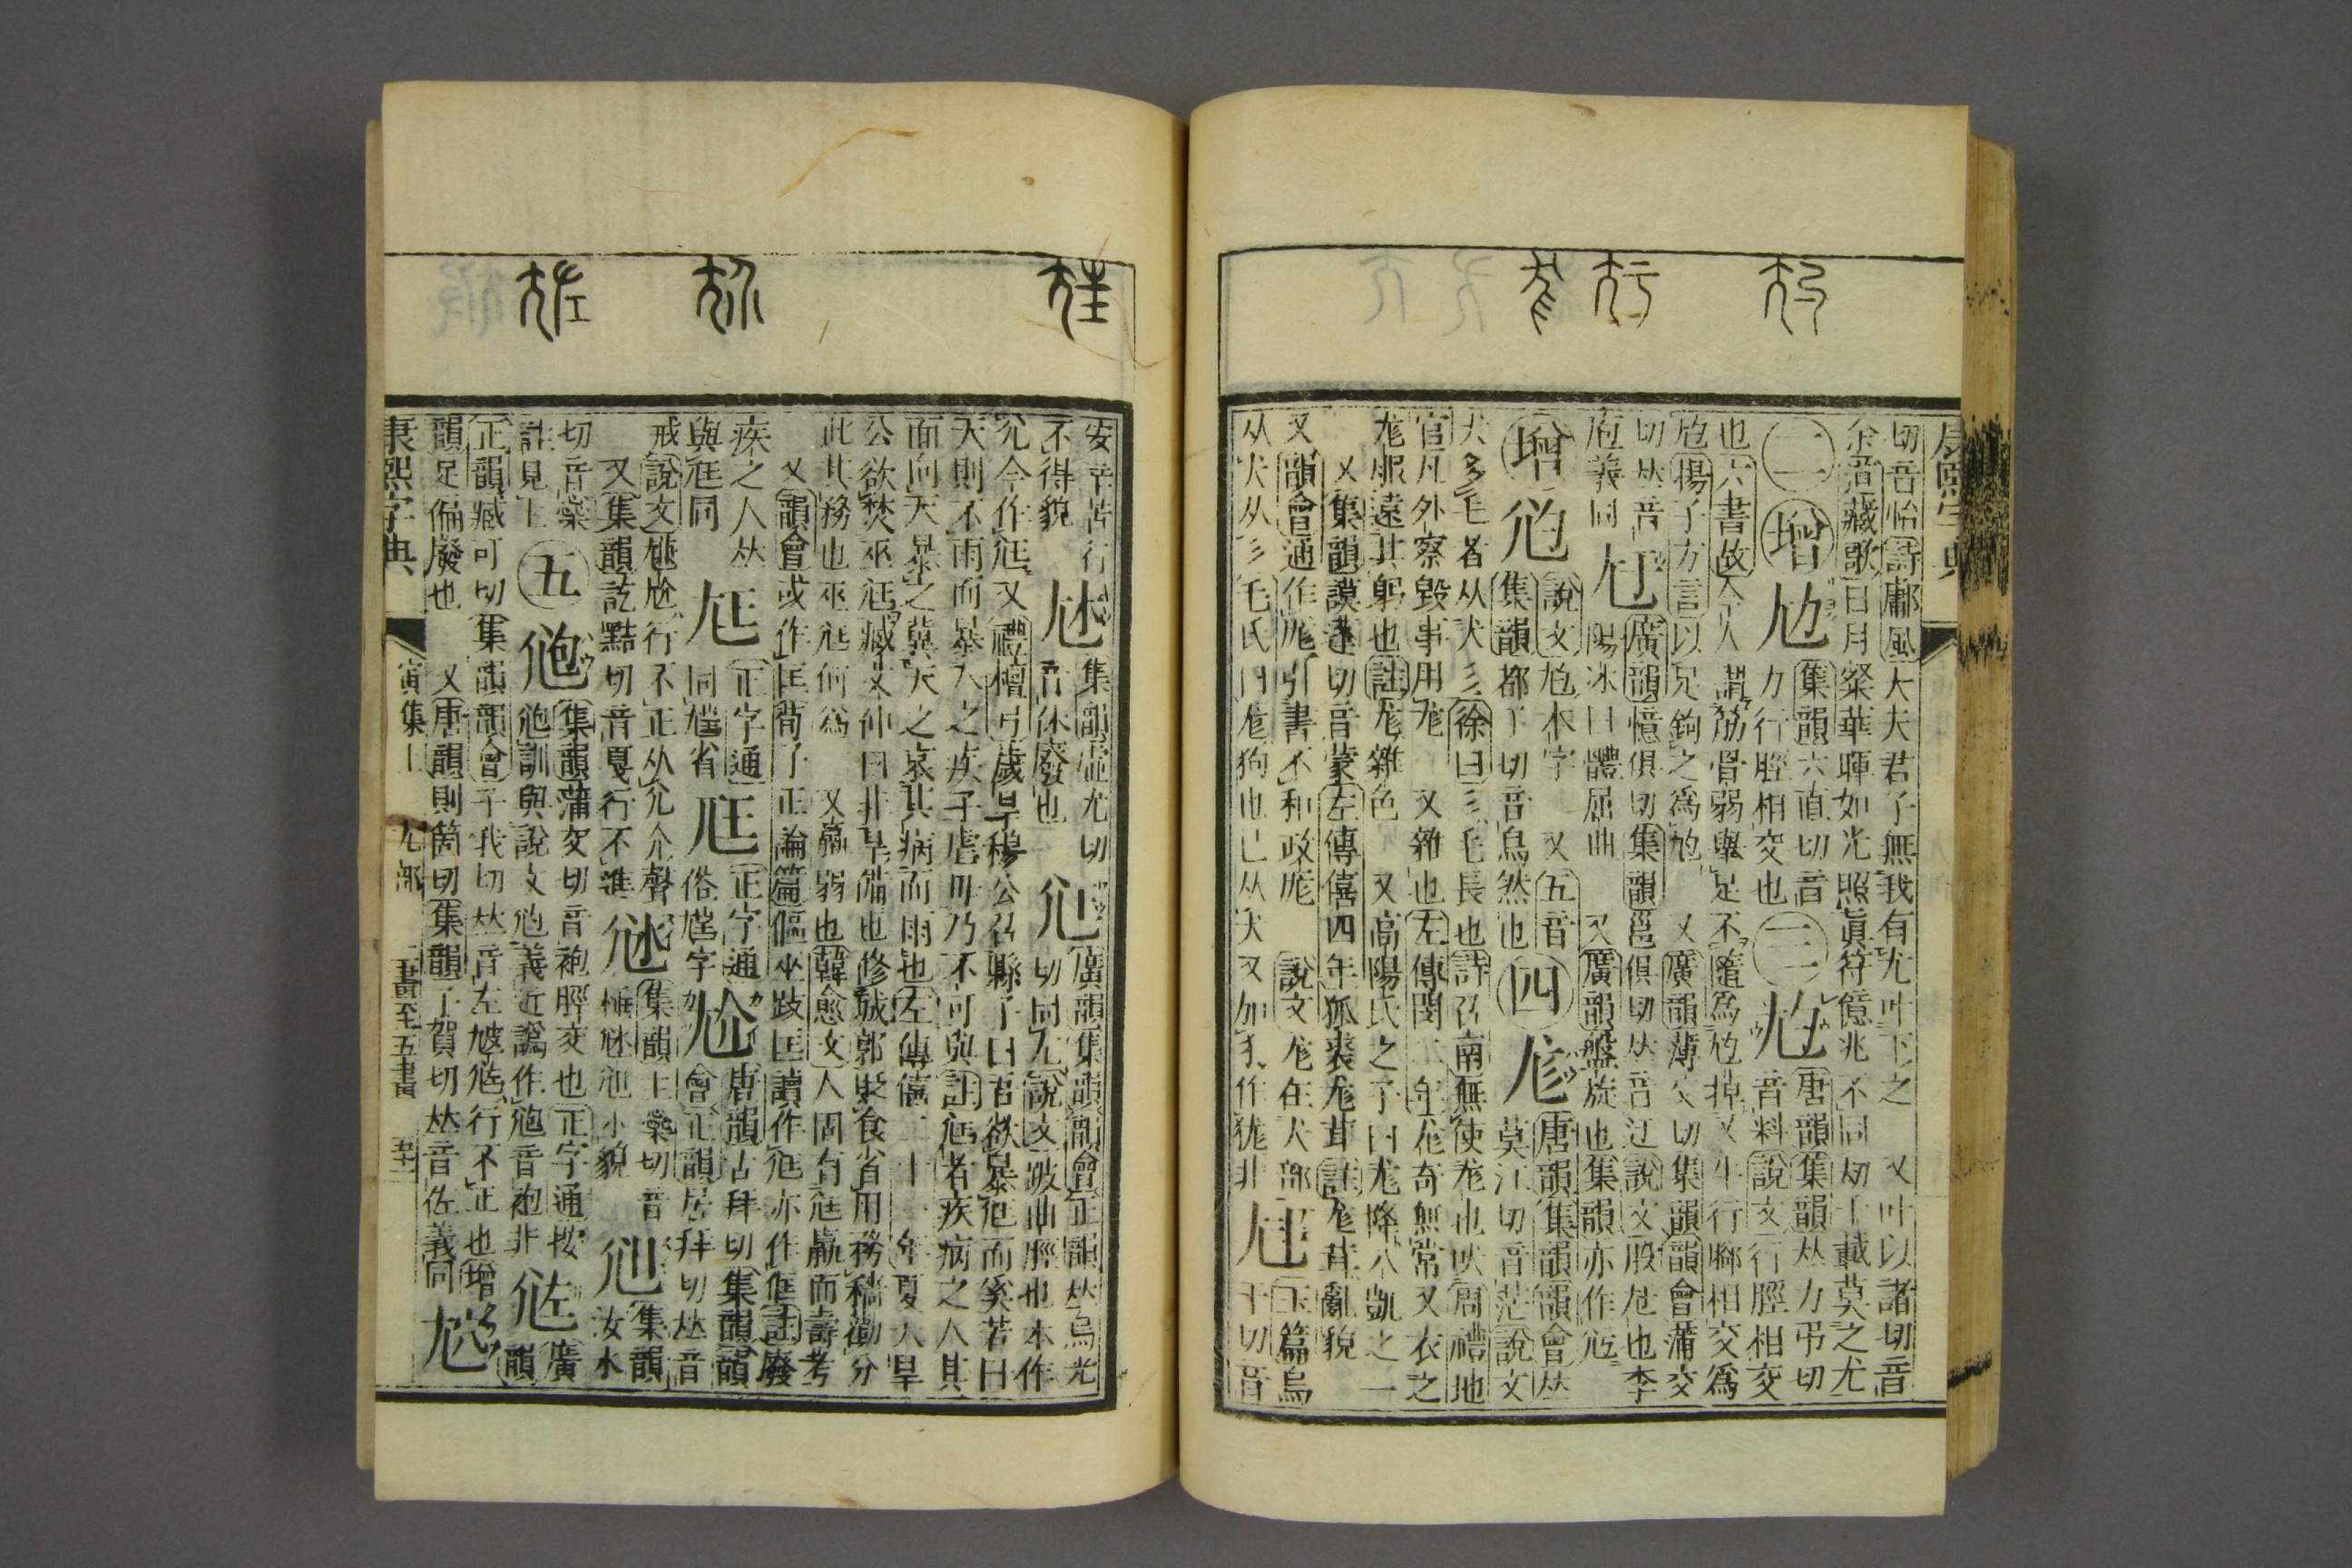 切音怡詩鄘風大夫君子無我有尤叶下之 又叶以諸切音
余道藏歌日月粲華暉如光照眞符億兆不同劫十載莫之尤
二 增 尥 集韻六直切音力行脛相交也 三 尥 唐韻集韻𠀤力弔切音料說文行脛相交
也六書故今人謂筋骨弱舉足不隨爲尥掉又牛行腳相交爲
尥揚子方言以足鉤之爲尥 又廣韻薄交切集韻韻會蒲交
切𠀤音 義同 尪 廣韻憶俱切集韻邕俱切𠀤音迂說文股尪也李
陽冰曰體屈曲 又廣韻盤旋也集韻亦作
增 說文 本字 又五音集韻都了切音鳥然也 四 尨 唐韻集韻韻會𠀤莫江切音茫說文
犬多毛者从犬彡徐曰彡毛長也詩召南無使尨也吠周禮地
官凡外祭毀事用尨 又雜也左傳閔二年尨奇無常又衣之
尨服遠其躬也註尨雜色 又高陽氏之子曰尨降八凱之一
又集韻謨蓬切音蒙左傳僖四年狐裘尨茸註尨茸亂貌
又韻會通作厖引書不和政厖 說文尨在犬部
从犬从彡毛氏曰尨狗也已从犬又加犭作狵非 玉篇烏
干切音
安辛苦行不得貌 集韻虛尤切音休廢也 尪 廣韻集韻韻會正韻𠀤烏光
切同尢說文跛曲脛也本作
尢今作尪又禮檀弓歲旱穆公召縣子曰吾欲暴尪而奚若曰
天則不雨而暴人之疾子虐毋乃不可與註尪者疾病之人其
面向天暴之冀天之哀其病而雨也左傳僖二十一年夏大旱
公欲焚巫尪臧文仲曰非旱備也修城郭貶食省用務穡勸分
此其務也巫尪何爲 又羸弱也韓愈文人固有尪羸而壽考
又韻會或作匡荀子正論篇傴巫跂匡讀作尪亦作 註廢
疾之人𠀤與尪同 正字通同尳省 正字通俗 字 尬 唐韻古拜切集韻韻
會正韻居拜切𠀤音
戒說文尲尬行不正从尢介聲 集韻 切音 小貌 集韻汝水
又集韻訖黠切音戛行不進
切音蘂註見上 五 尦 集韻蒲交切音袍脛交也正字通按
訓與說文尥義近譌作 音袍非 廣韻
正韻臧可切集韻韻會子我切𠀤音左尳 行不正也增
韻足偏廢也 又唐韻則箇切集韻子賀切𠀤音佐義同
康熙字典 寅集上 尢部 一畫至五畫